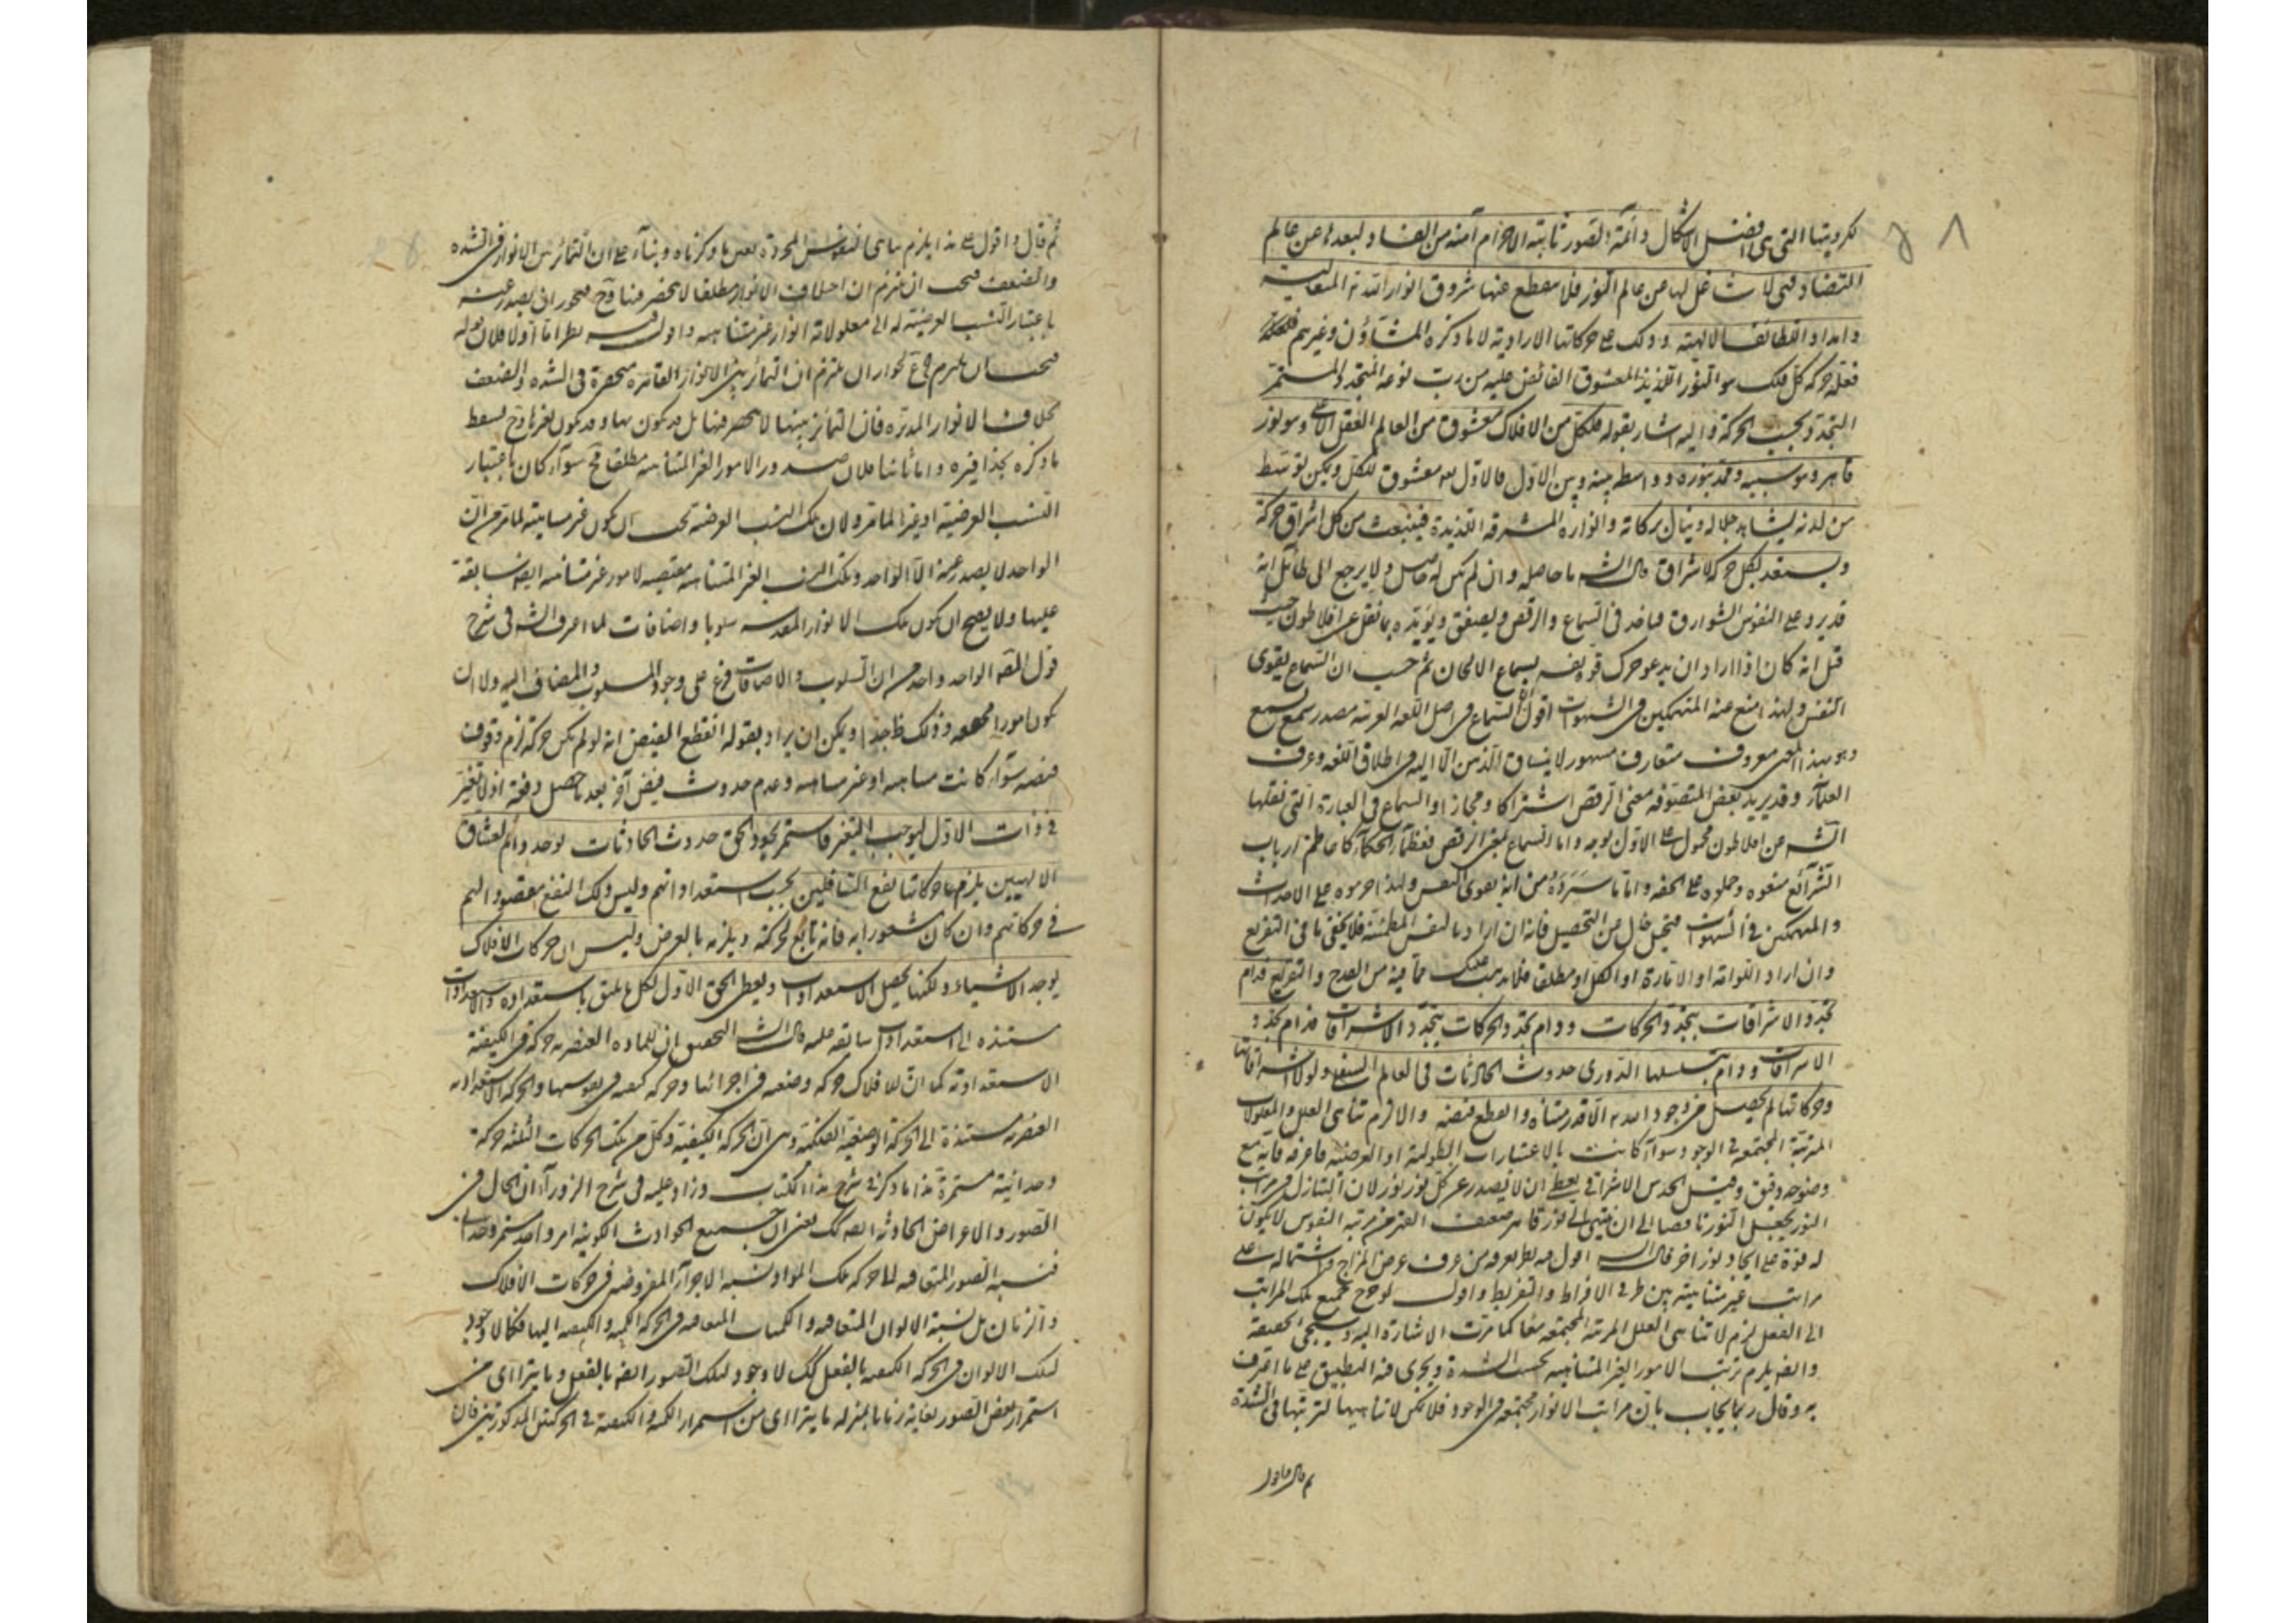 لكرويتها التي هي افضل الاشكال دائمة الصور ثابتة الاجرام آمنة من الفساد لبعدها عن عالم
التضاد فهى لا شاغل لها عن عالم النور فلا ينقطع عنها شروق انوار الله المتعالية
وامداد اللطائف الالهية وذلك على حركاتها الارادية لا ما ذكره المشاؤن وغيرهم
فعلة حركة كل فلك هو النور اللذيذ المعشوق الفائض عليه من رب نوعه المتجدد المستمر
التجدد بحسب الحركة واليه اشار بقوله فلكل من الافلاك معشوق من العالم العقلى الاعلى وهو نور
قاهر وهو سببه وممده بنوره وواسطة بينه وبين الاول فالاول هو معشوق الكل ويكن بتوسط
من لدنه يشاهد جلاله وينال بركاته وانواره المشرقة اللذيذة فينبعث من كل اشراق حركة
ويستعد بكل حركة لاشراق قال الشه ما حاصله وان لم يكن له حاصل ولا يرجع الى طائل انه
قد يرد على النفوس الشوارق فتأخذ فى السماع والرقص ويصفق ويؤيده بما نقل عن افلاطون حيث
قيل انه كان اذا اراد ان يدعو حرك قوة نفسه بسماع الالحان ثم حسب ان السماع يقوى
النفس ولهذا منع عنه المنهمكين فى الشهوات اقول السماع فى اصل اللغة العربية مصدر سمع يسمع
وهو بهذا المعنى معروف متعارف مشهور لا ينساق الذهن الا اليه فى اطلاق اللغة وعرف
العلماء وقد يريد بعض المتصوفة معنى الرقص اشتراكا او مجازا والسماع فى العبارة التى نقلها
الشه عن افلاطون محمول على الاول بوجه واما السماع بمعنى الرقص فعظماء الحكماء كاعاظم ارباب
الشرائع منعوه وحملوه على الخفة واما ما سرده من انه يقوى النفس ولهذا حرموه على الاحداث
والمنهمكين فى الشهوات فتخيل خال من التحصيل فانه ان اراد بالنفس المطمئنة فلا يخفى ما فى التفريع
وان اراد اللوامة او الامارة او الكل او مطلقا فلا يذهب عليك ما فيه من القدح والتقريع فدام
تجدد الاشراقات بتجدد الحركات ودوام تجدد الحركات بتجدد الاشراقات فدام تجدد
الاشراقات ودوام بتسلسلها الدورى حدوث الحادثات فى العالم السفلى ولولا اشراقاتها
وحركاتها لم يحصل من وجود الله الا قدر متناه وانقطع فيضه والا لزم تناهى العلل والمعلولات
المترتبة المجتمعة فى الوجود سواء كانت بالاعتبارات الطولية او العرضية فاعرفه فانه مع
وضوحه دقيق وقيل الحدس الاشراقى يعطى ان لا يصدر عن كل نور نور لان التنازل فى مراتب
النور يجعل النور ناقصا الى ان ينتهى الى نور قاهر ضعيف القرب من مرتبة النفوس لا يكون
له قوة على ايجاد نور اخر قال الشه اقول فيه نظر يعرفه من عرف عرض المزاج واشتماله على
مراتب غير متناهية بين طرفى الافراط والتفريط واقول لو خرج جميع تلك المراتب
الى الفعل لزم لا تناهى العلل المرتبة المجتمعة معا كما مرت الاشارة اليه وسيجى تحقيقه
وايضا يلزم ترتب الامور الغير المتناهية بحسب الشدة ويجرى فيه التطبيق على ما اعترف
به وقال ربما يجاب بان مراتب الانوار مجتمعة فى الوجود فلا يمكن لا تناهيها لترتبها فى الشدة
ثم قال واقول
ثم قال واقول على هذا يلزم تناهى النفوس المجردة بعين ما ذكرناه وبناء على ان التمائز بين الانوار فى الشدة
والضعف فيجب ان نلتزم ان اختلاف الانوار مطلقا لا ينحصر فيهما وح فيجوز ان يصدر عنه
باعتبار النسب العرضية له الى معلولاته انوار غير متناهية واقول فيه نظر اما اولا فلان قوله
فيجب ان نلتزم فى ع لجواز ان نلتزم ان التمائز بين الانوار القاهرة منحصرة فى الشدة والضعف
بخلاف الانوار المدبرة فان التمائز بينها لا ينحصر فيهما بل قد يكون بهما وقد يكون بغيرهما وح يسقط
ما ذكره بحذافيره واما ثانيا فلان صدور الامور الغير المتناهية مطلقا مح سواء كان باعتبار
النسب العرضية او غيرها لما مر ولان تلك النسب العرضية يجب ان يكون غير متناهية لما مر من ان
الواحد لا يصدر عنه الا الواحد وتلك النسب الغير المتناهية مقتضية لامور غير متناهية ايضا سابقة
عليها ولا يصح ان يكون تلك الانوار المقدسة سلوبا واضافات لما اعترف الشه فى شرح
قول المص الواحد واحد من ان السلوب والاضافات فرع على وجود المسلوب والمضاف اليه ولا ان
يكون امورا وذلك ظ جدا ويمكن ان يراد بقوله انقطع الفيض انه لو لم يكن حركة لزم وقوف
فيضه سواء كانت متناهية او غير متناهية وعدم حدوث فيض آخر بعد ما حصل دفعة اذ لا تغير
فى ذات الاول ليوجب التغير فاستمر بجود الحق حدوث الحادثات لوجد دائم لعشاق
الالهيين يلزم ما حركاتها نفع السافلين بحسب استعداداتهم وليس ذلك النفع مقصودا لهم
فى حركاتهم وان كان مشعورا به فانه تابع لحركته ويلزمه بالعرض وليس ان حركات الافلاك
يوجد الاشياء ولكنها يحصل الاستعدادات ويعطى الحق الاول لكل ما يليق باستعداده والاستعدادات
مستندة الى استعدادات سابقة عليه قال الشه التحقيق ان للمادة العنصرية حركة فى الكيفية
الاستعدادية كما ان للافلاك حركة وضعية فى اجرامها وحركة كيفية فى نفوسها والحركة الاستعدادية
العنصرية مستندة الى الحركة الوضعية الفلكية وهى الى الحركة الكيفية وكل من تلك الحركات الثلثة حركة
وحدانية مستمرة هذا ما ذكر فى شرح هذا الكتاب وزاد عليه فى شرح الزوراء ان الحال فى
الصور والاعراض الحادثة ايضا كك يعنى ان جميع الحوادث الكونية امر واحد مستمر وحدانى
فنسبة الصور المتعاقبة لها حركة تلك المواد نسبة الاجزاء المفروضة فى حركات الافلاك
والزمان بل نسبة الالوان المتعاقبة والكميات المتعاقبة فى الحركة الكمية والكيفية اليها فكما لا وجود
لتلك الالوان فى الحركة الكيفية بالفعل كك لا وجود لتلك الصور ايضا بالفعل وما يتراآى من
استمرار بعض الصور بعاينه زمانا بمنزلة ما يتراآى من استمرار الكمية والكيفية فى الحركتين المذكورتين فان